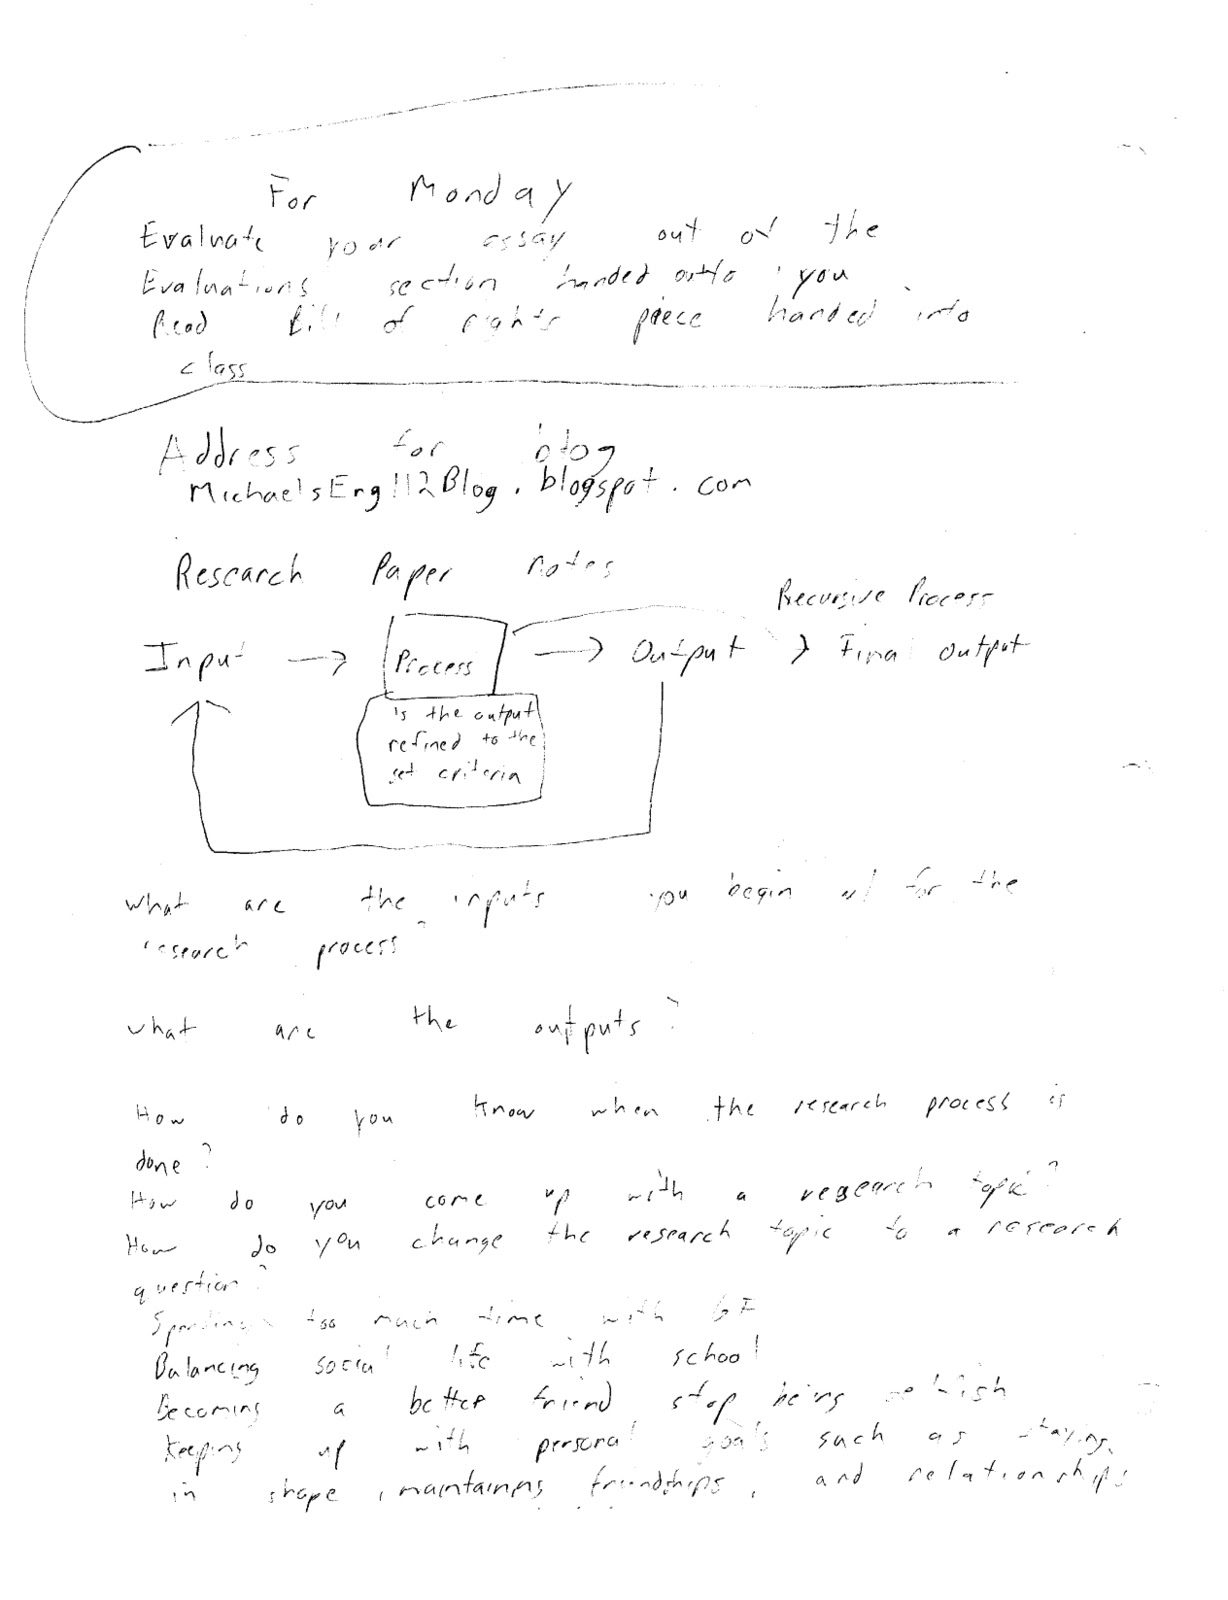 For Monday
Evaluate your essay out of the
Evaluations section handed outto you
Read Bill of rights piece handed into
class
Address for blog
MichaelsEng112Blog.blogspot.com
Research Paper notes
Recursive Process
Input → Process → Output → Final output
is the output
refined to the
set criteria
what are the inputs you begin w/ for the
research process?
what are the outputs?
How do you know when the research process is
done?
How do you come up with a research topic?
How do you change the research topic to a research
question?
Spending too much time with GF
Balancing social life with school
Becoming a better friend stop being selfish
Keeping up with personal goals such as staying
in shape, maintaining friendships, and relationships